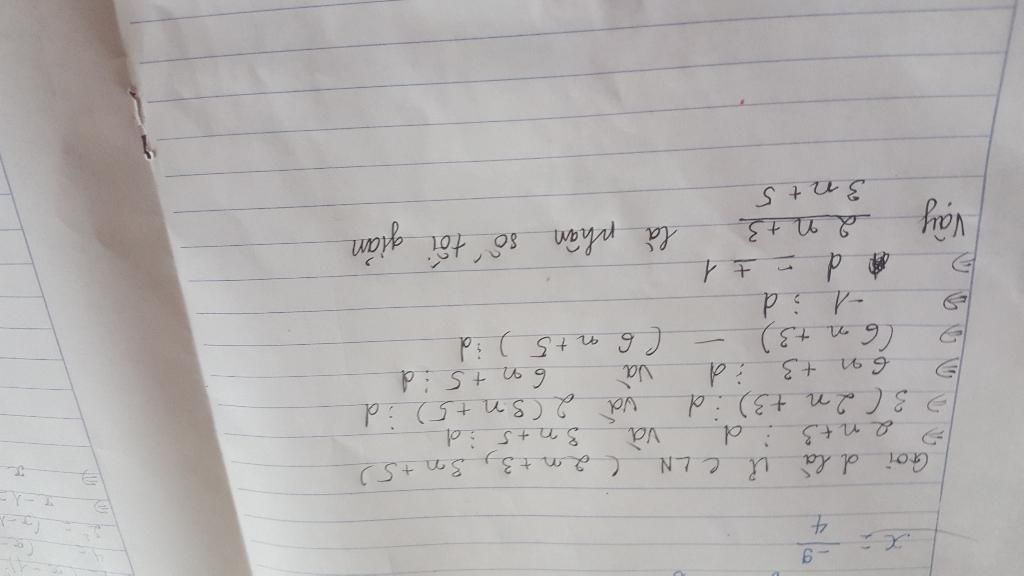 x = -9/4
Gọi d là ƯCLN (2n+3, 3n+5)
⇒ 2n+3 ⋮ d và 3n+5 ⋮ d
⇒ 3(2n+3) ⋮ d và 2(3n+5) ⋮ d
⇒ 6n+3 ⋮ d và 6n+5 ⋮ d
⇒ (6n+3) - (6n+5) ⋮ d
⇒ -1 ⋮ d
⇒ d = ±1
Vậy 2n+3/3n+5 là phân số tối giản